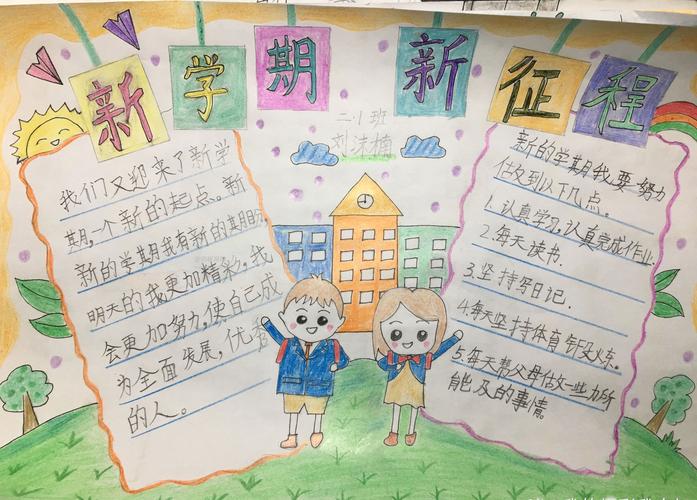 新学期新征程
二.1班
刘沫楠
我们又迎来了新学
期,一个新的起点。新
新的学期我有新的期盼,
明天的我更加精彩,我
会更加努力,使自己成
为全面发展,优秀
的人。
新的学期我要努力
做到以下几点。
1.认真学习,认真完成作业
2.每天读书.
3.坚持写日记.
4.每天坚持体育锻炼.
5.每天帮父母做一些力所
能及的事情。